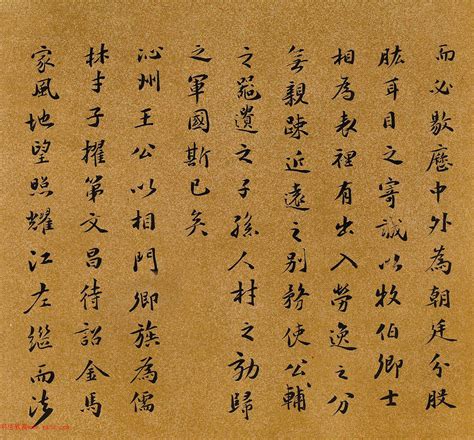 而必敭歷中外為朝廷分股
肱耳目之寄誠以牧伯卿士
相為表裡有出入勞逸之分
無親疎近遠之別務使公輔
之器遺之子孫人材之効歸
之軍國斯已矣
沁州王公以相門卿族為儒
林才子擢第文昌待詔金馬
家風地望照耀江左繼而法